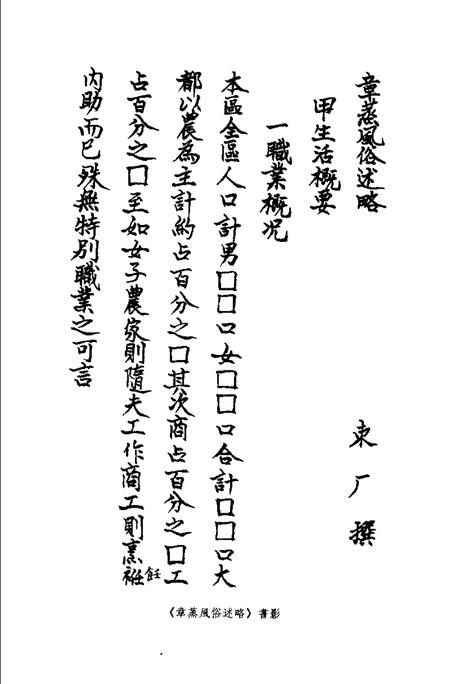 章蒸風俗述略 束厂撰
甲生活概要
一職業概况
本區全區人口計男□□口女□□口合計□□口大
都以農為主計約占百分之□其次商占百分之□工
占百分之□至如女子農家則隨夫工作商工則烹袵
飪
内助而已殊無特別職業之可言
《章蒸風俗述略》書影